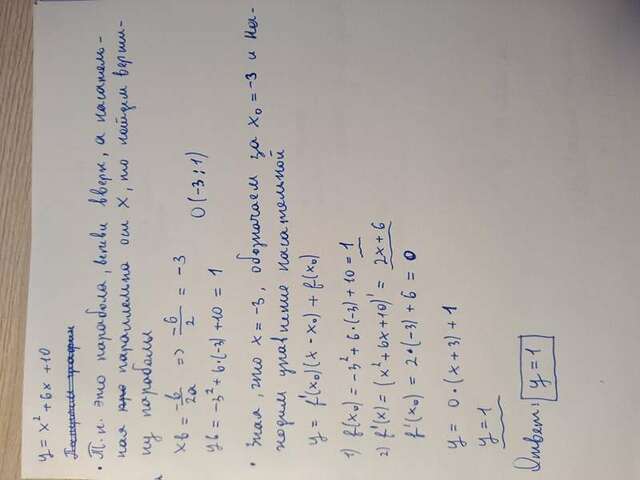 y = x² + 6x + 10
Построим график
• Т.к. это парабола, ветви вверх, а касатель-
ная кро параллельна оси X, то найдем верши-
ну параболы
xв = -b/2a => -6/2 = -3
yв = -3² + 6·(-3) + 10 = 1 O(-3; 1)
• Зная, что x = -3, обозначаем за x₀ = -3 и на-
ходим уравнение касательной
y = f'(x₀)(x - x₀) + f(x₀)
1) f(x₀) = -3² + 6·(-3) + 10 = 1
2) f'(x) = (x² + 6x + 10)' = 2x + 6
f'(x₀) = 2·(-3) + 6 = 0
y = 0·(x + 3) + 1
y = 1
Ответ: y = 1